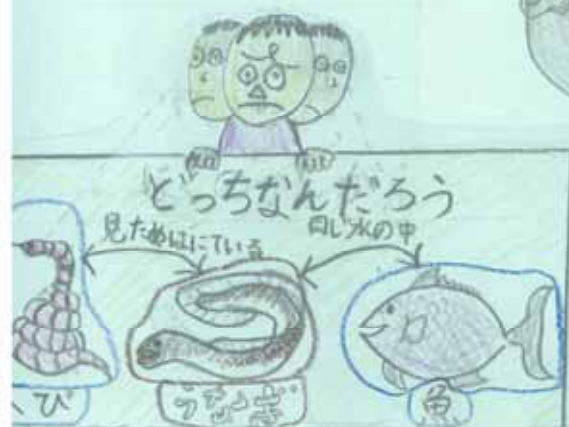 どっちなんだろう
見ためはにている
同じ水の中
へび
うなぎ
魚